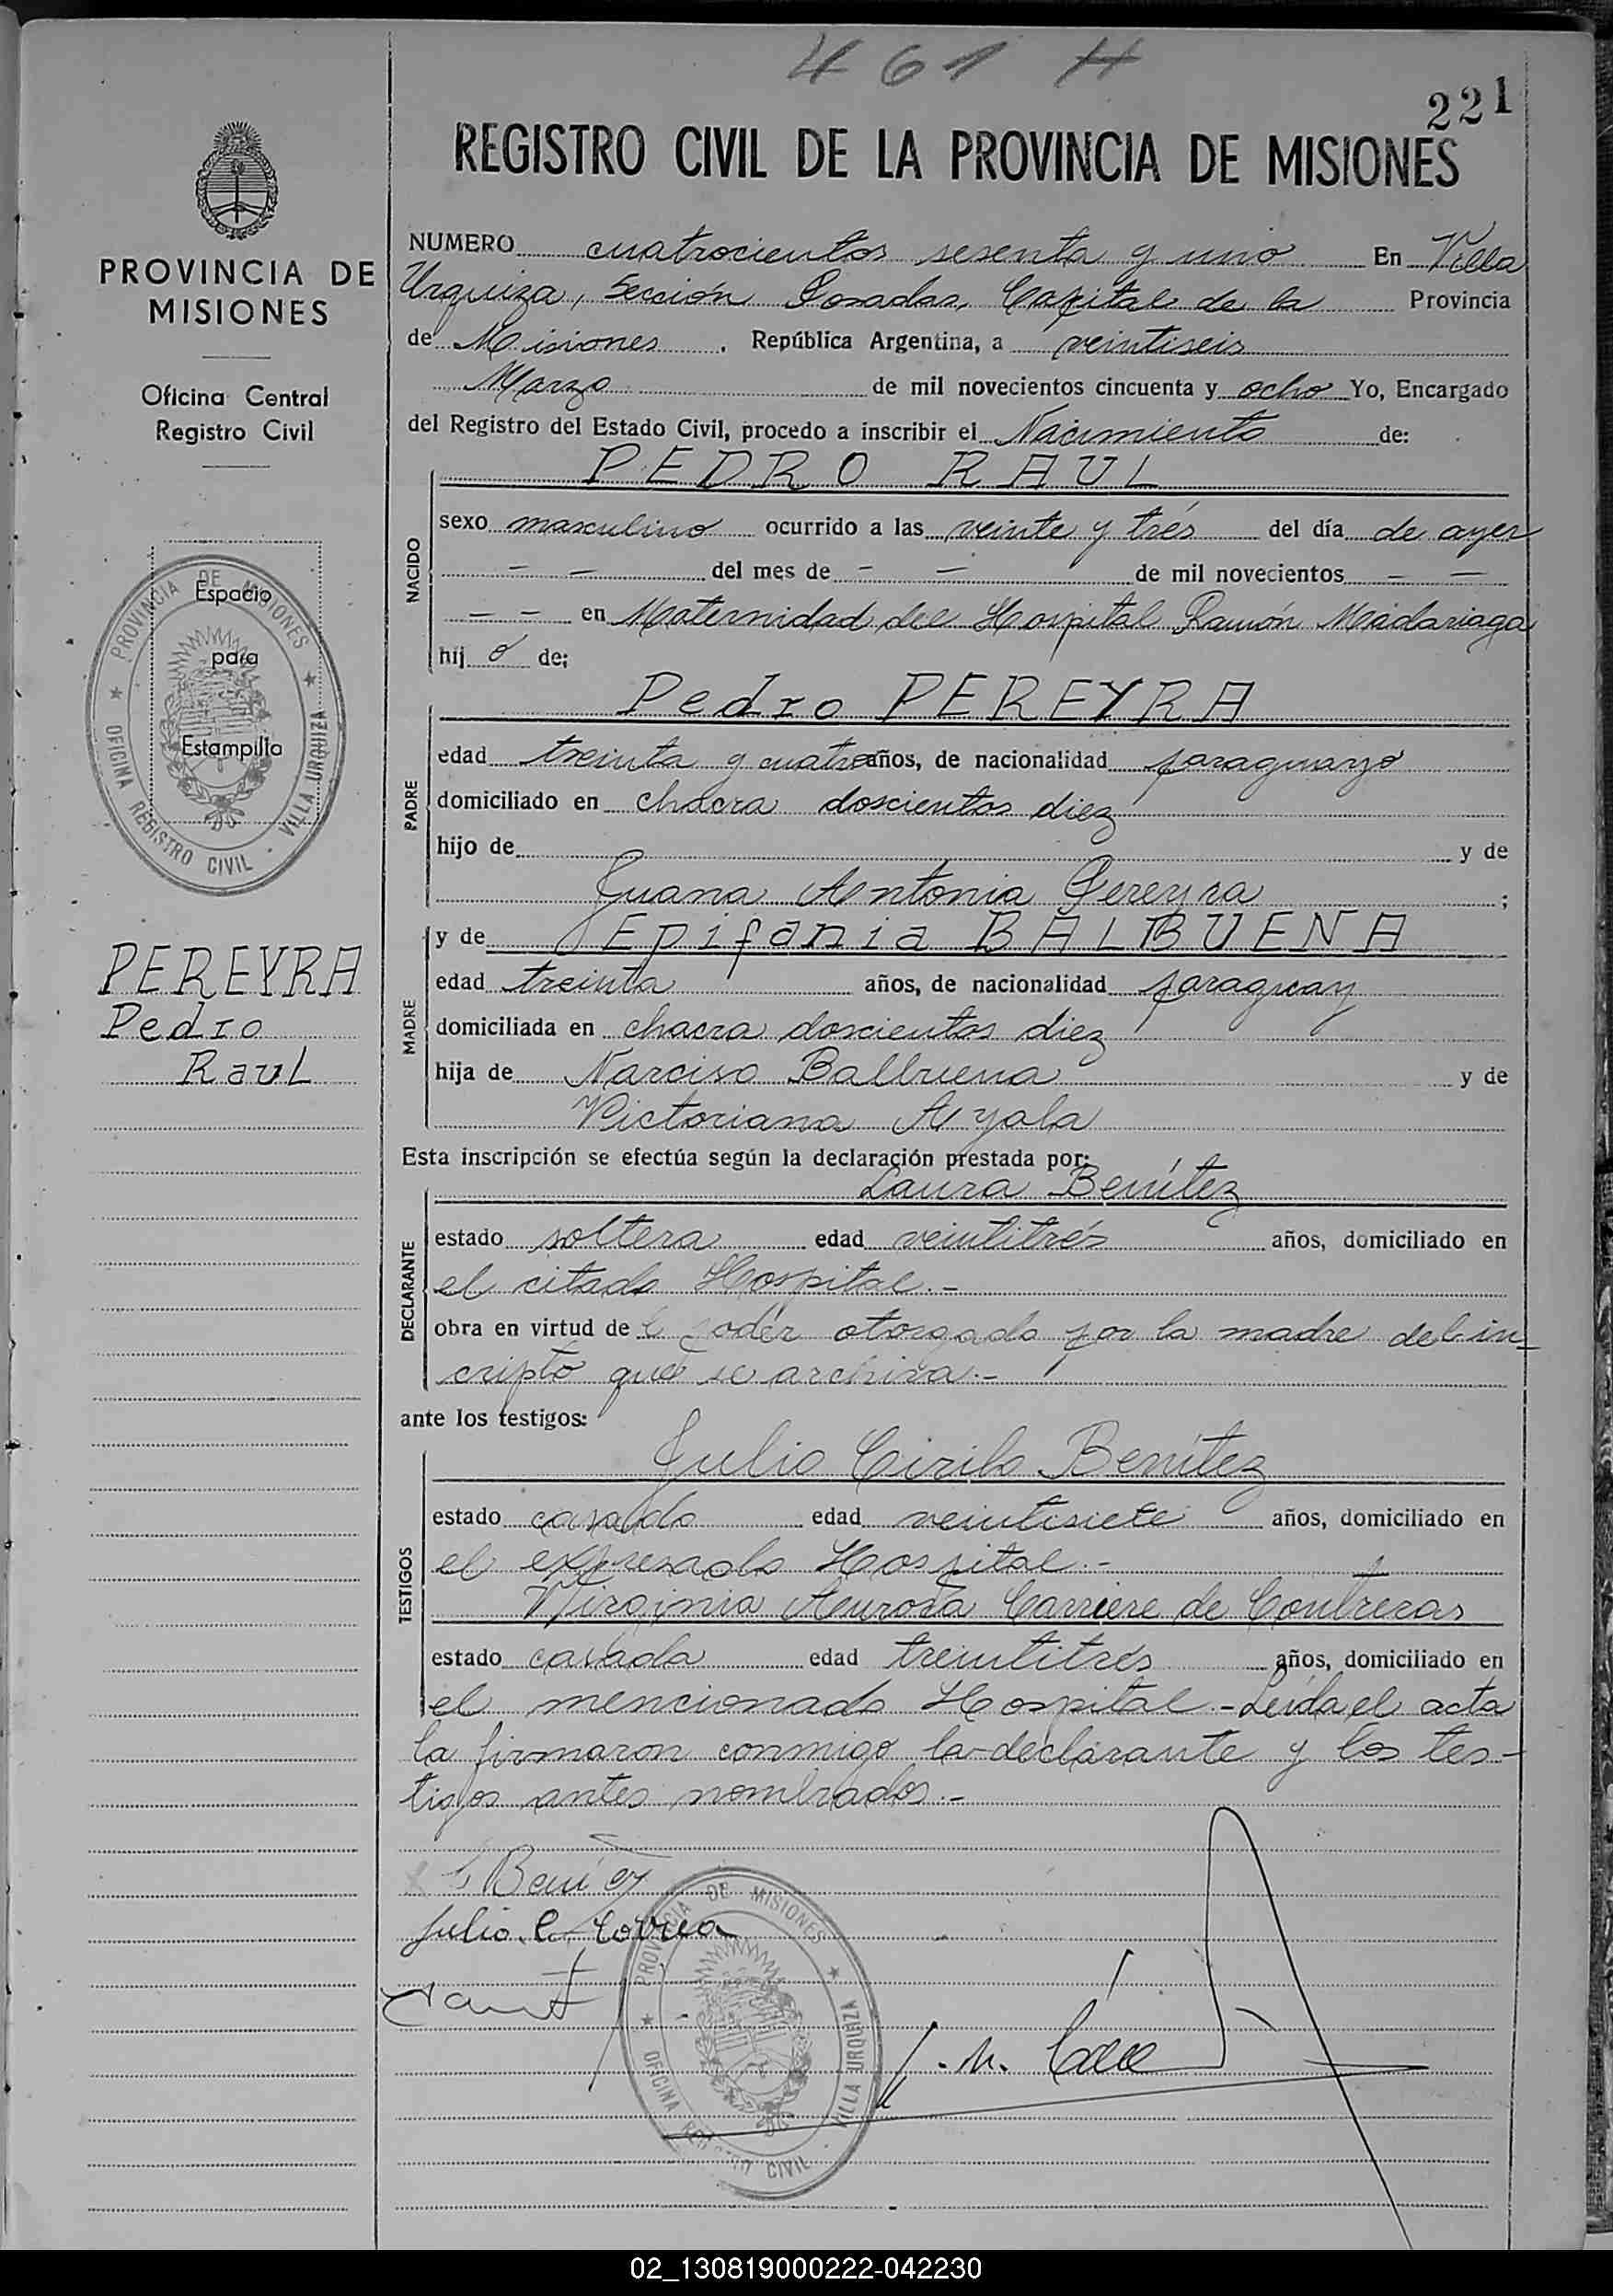 461 H
221
REGISTRO CIVIL DE LA PROVINCIA DE MISIONES
PROVINCIA DE
MISIONES
Oficina Central
Registro Civil
PROVINCIA DE MISIONES
Espacio
para
Estampilla
OFICINA REGISTRO CIVIL - VILLA URQUIZA
PEREYRA
Pedro
Raul
NUMERO cuatrocientos sesenta y uno En Villa
Urquiza, Sección Posadas, Capital de la Provincia
de Misiones, República Argentina, a veintiseis
Marzo de mil novecientos cincuenta y ocho Yo, Encargado
del Registro del Estado Civil, procedo a inscribir el Nacimiento de:
NACIDO
PEDRO RAUL
sexo masculino ocurrido a las veinte y trés del día de ayer
- - del mes de - - de mil novecientos - -
- - en Maternidad del Hospital Ramón Madariaga
hij o de;
PADRE
Pedro PEREYRA
edad treinta y cuatro años, de nacionalidad paraguayo
domiciliado en chacra doscientos diez
hijo de y de
Juana Antonia Pereyra ;
MADRE
y de Epifania BALBUENA
edad treinta años, de nacionalidad paraguay
domiciliada en chacra doscientos diez
hija de Narciso Balbuena y de
Victoriana Ayala
Esta inscripción se efectúa según la declaración prestada por:
DECLARANTE
Laura Benítez
estado soltera edad veintitrés años, domiciliado en
el citado Hospital.-
obra en virtud del poder otorgado por la madre del in-
cripto que se archiva.-
ante los testigos:
TESTIGOS
Julio Cirilo Benítez
estado casado edad veintisiete años, domiciliado en
el expresado Hospital.-
Virginia Aurora Carriere de Contreras
estado casada edad treintitrés años, domiciliado en
el mencionado Hospital.- Leída el acta
la firmaron conmigo la declarante y los tes-
tigos antes nombrados.-
L Benítez
Julio C. Correa
PROVINCIA DE MISIONES
OFICINA REGISTRO CIVIL - VILLA URQUIZA
02_130819000222-042230